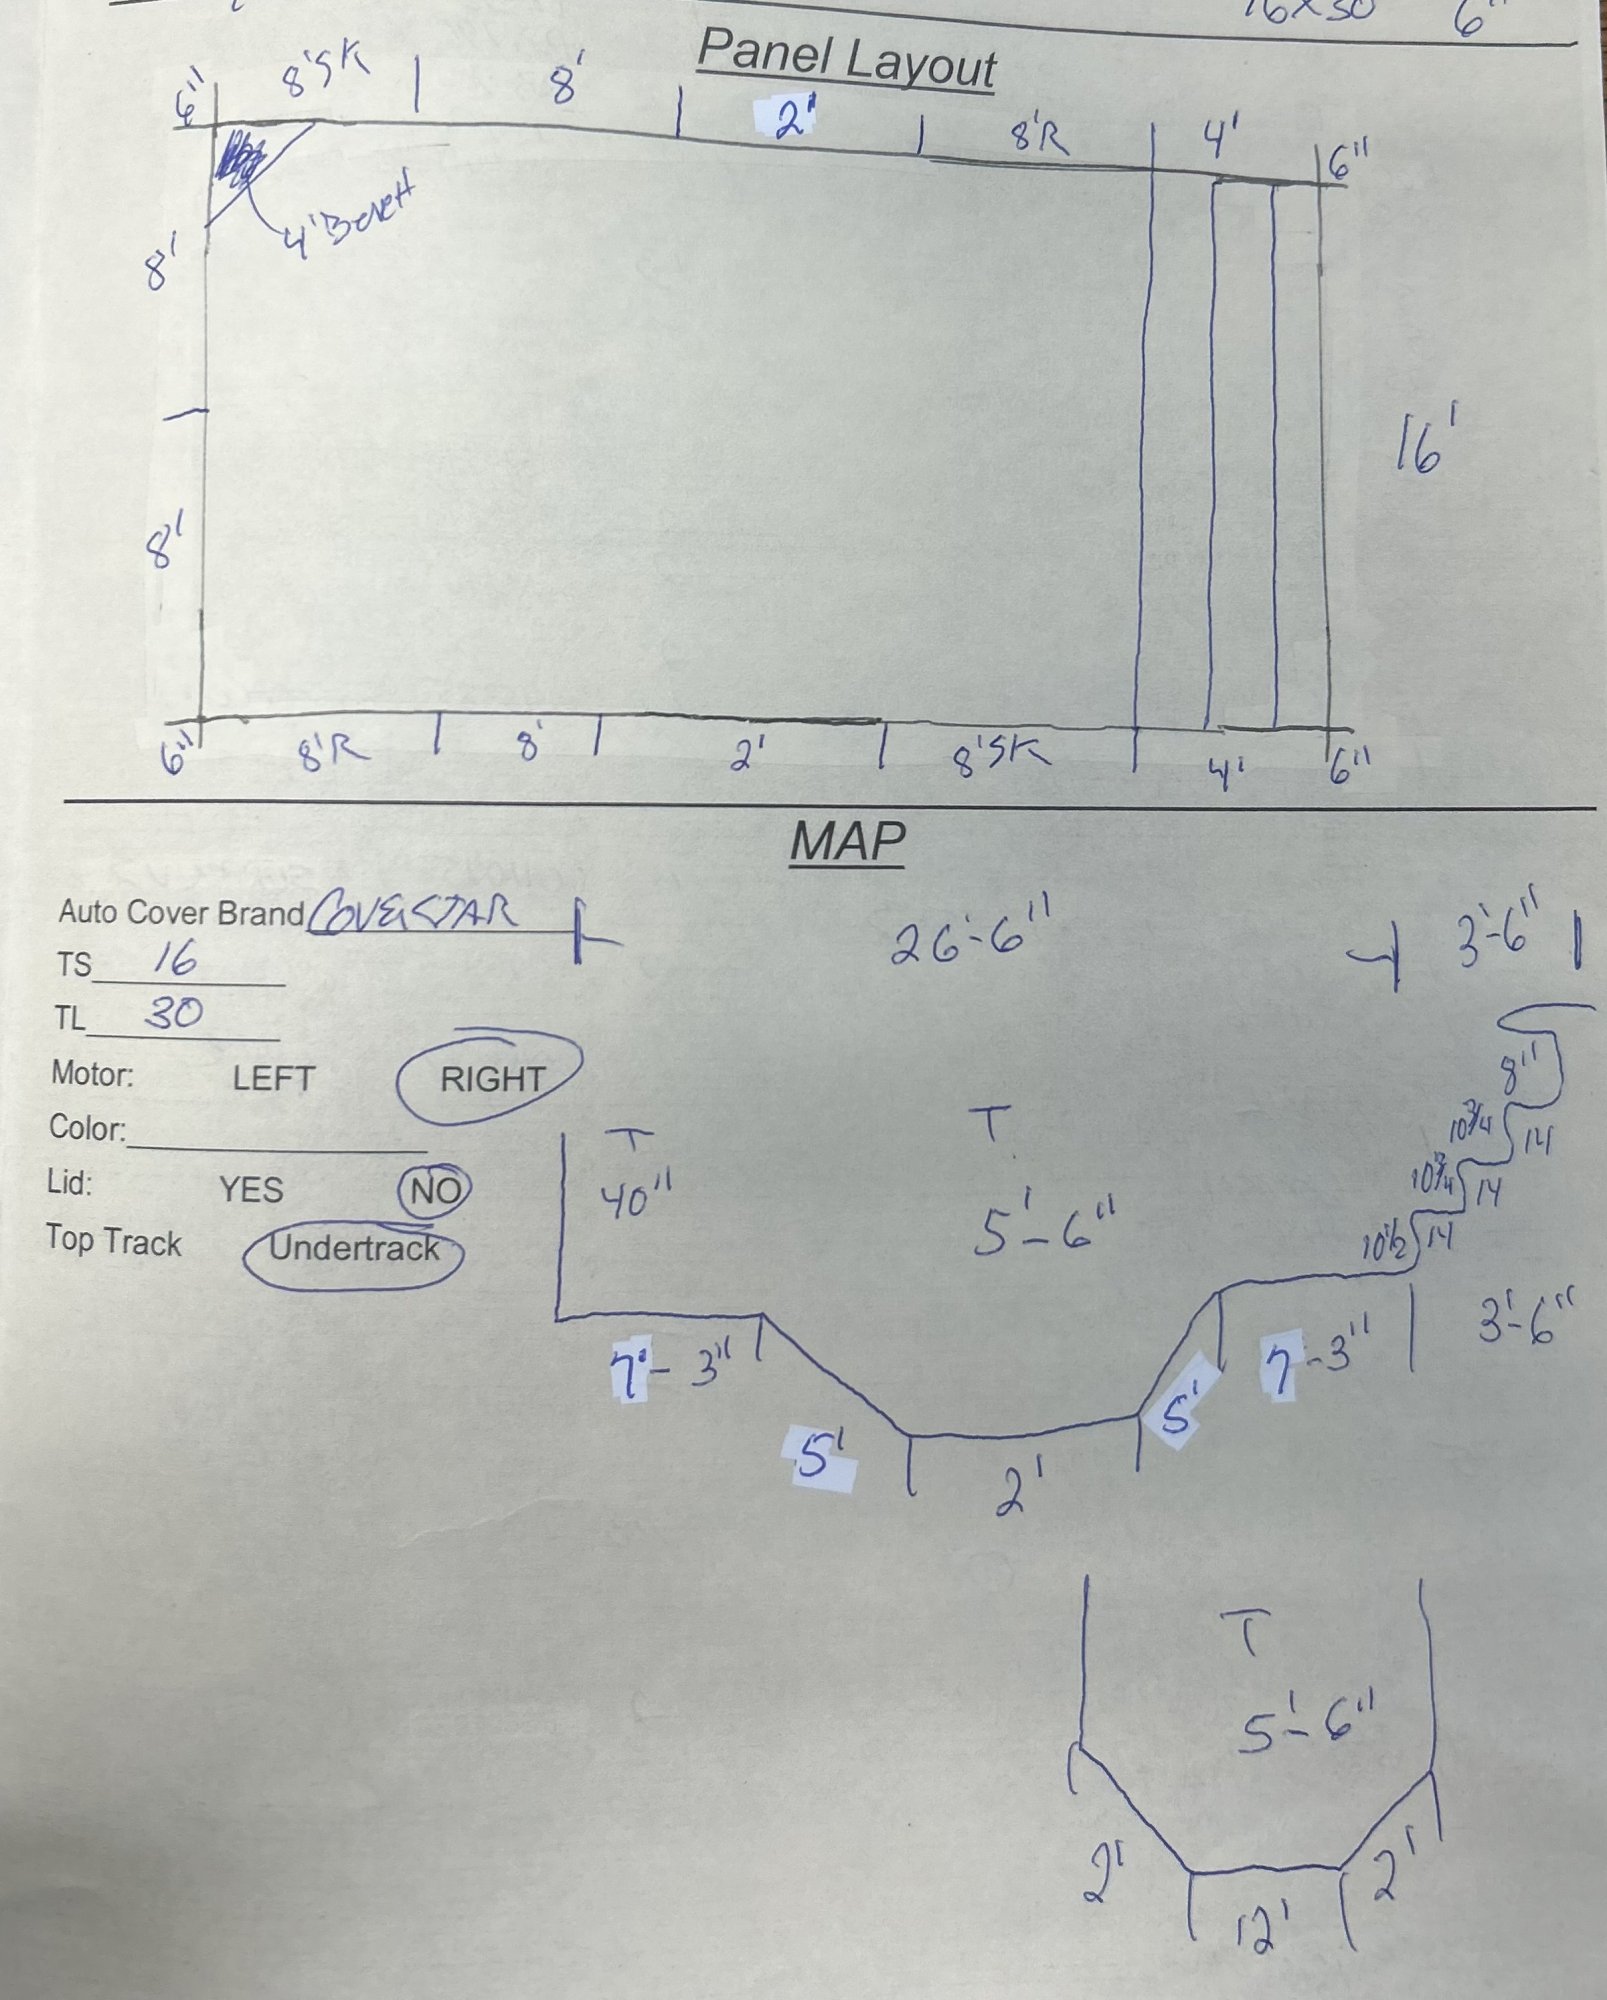 16x30 6"
Panel Layout
6" 8'SK 8' 2' 8'R 4' 6"
4'Bench
8'
16'
8'
6" 8'R 8' 2' 8'SK 4' 6"
MAP
Auto Cover Brand COVERSTAR
26'-6" 3'-6"
TS 16
TL 30
Motor: LEFT RIGHT
Color:
Lid: YES NO
Top Track Undertrack
T
40"
T
5'-6"
8"
10 3/4 14
10 3/4 14
10 1/2 14
7'-3" 5' 2' 5' 7-3" 3'-6"
T
5'-6"
2' 12' 2'